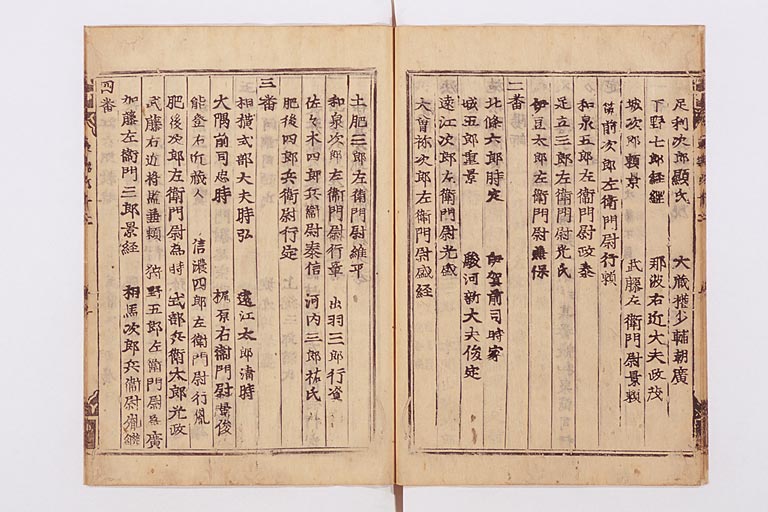 足利次郎顕氏　大蔵権少輔朝廣
下野七郎経綱　那波右近大夫政茂
城次郎頼景　武藤左衛門尉景頼
筑前次郎左衛門尉行頼
和泉五郎左衛門尉政泰
足立三郎左衛門尉光氏
伊豆太郎左衛門尉實保
二番
北條六郎時定　伊賀前司時家
城五郎重景　駿河新大夫俊定
遠江次郎左衛門尉光盛
大曾祢次郎左衛門尉盛経
土肥三郎左衛門尉維平
和泉次郎左衛門尉行章　出羽三郎行資
佐々木四郎兵衛尉泰信　河内三郎祐氏
肥後四郎兵衛尉行定
三番
相模式部大夫時弘　遠江太郎清時
大隅前司忠時　梶原右衛門尉景俊
能登右近蔵人　信濃四郎左衛門尉行佩
肥後次郎左衛門尉為時　式部兵衛太郎光政
武藤右近将監兼頼　狩野五郎左衛門尉為廣
加藤左衛門三郎景経　相馬次郎兵衛尉胤継
四番